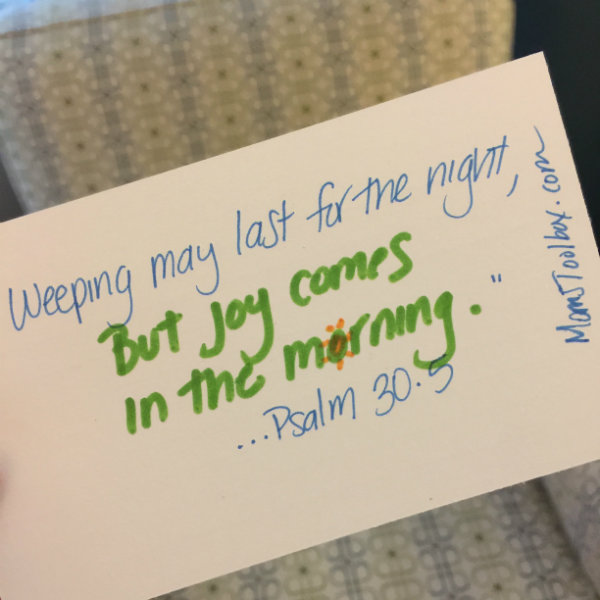 Weeping may last for the night,
But Joy comes
in the morning."
...Psalm 30.5
MomsToolbox.com